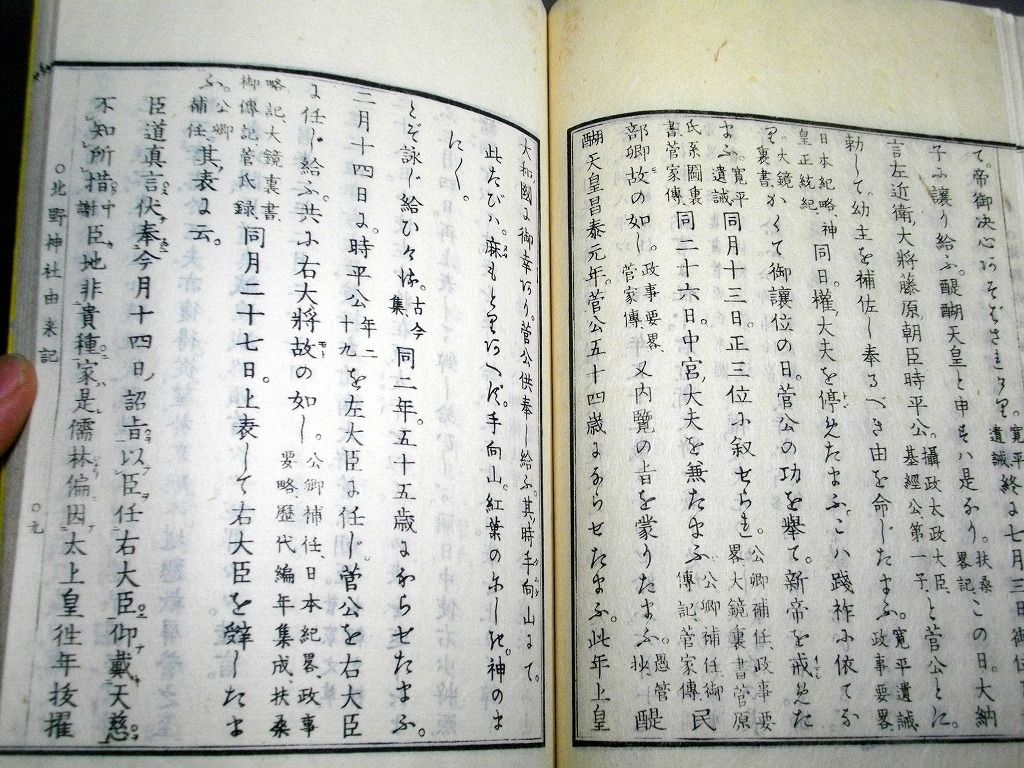 て。帝御决心ましましき。寛平遺誡終に七月三日御位
子に讓り給ふ。醍醐天皇と申すハ是なり。扶桑畧記この日。大納
言左近衛大將藤原朝臣時平公。攝政太政大臣基經公第一子と菅公とに。
勅して。幼主を補佐し奉るべき由を命じたまふ。寛平遺誡政事要畧
日本紀略神皇正統紀同日。權大夫を停めたまふ。こハ踐祚に依てな
り。大鏡裏書かくて御讓位の日。菅公の功を擧て。新帝を戒めた
まふ。寛平遺誡同月十三日。正三位に叙せらる。公卿補任、政事要畧大鏡裏書菅原
氏系圖裏書、菅家傳同二十六日。中宮大夫を兼たまふ。公卿補任御傳記、菅家傳民
部卿故の如し。政事要畧、菅家傳又内覽の旨を蒙りたまふ。愚管抄醍
醐天皇昌泰元年。菅公五十四歳にならせたまふ。此年上皇
大和國に御幸あり。菅公供奉し給ふ。其時手向山にて。
此たびハ。麻もとりあへず。手向山。紅葉のにしき。神のま
にく。
とぞ詠じ給ひける。古今集同二年。五十五歳にならせたまふ。
二月十四日に。時平公年二十九を左大臣に任し。菅公を右大臣
に任じ給ふ。共に右大將故の如し。公卿補任日本紀畧、政事要略、歷代編年集成、扶桑
略記大鏡裏書、御傳記、菅氏録同月二十七日。上表して右大臣を辭したま
ふ。公卿補任其表に云。
臣道真言伏奉今月十四日詔旨以臣任右大臣仰戴天慈
不知所措中謝臣地非貴種家是儒林偏因太上皇往年抜擢
○北野神社由来記
○九